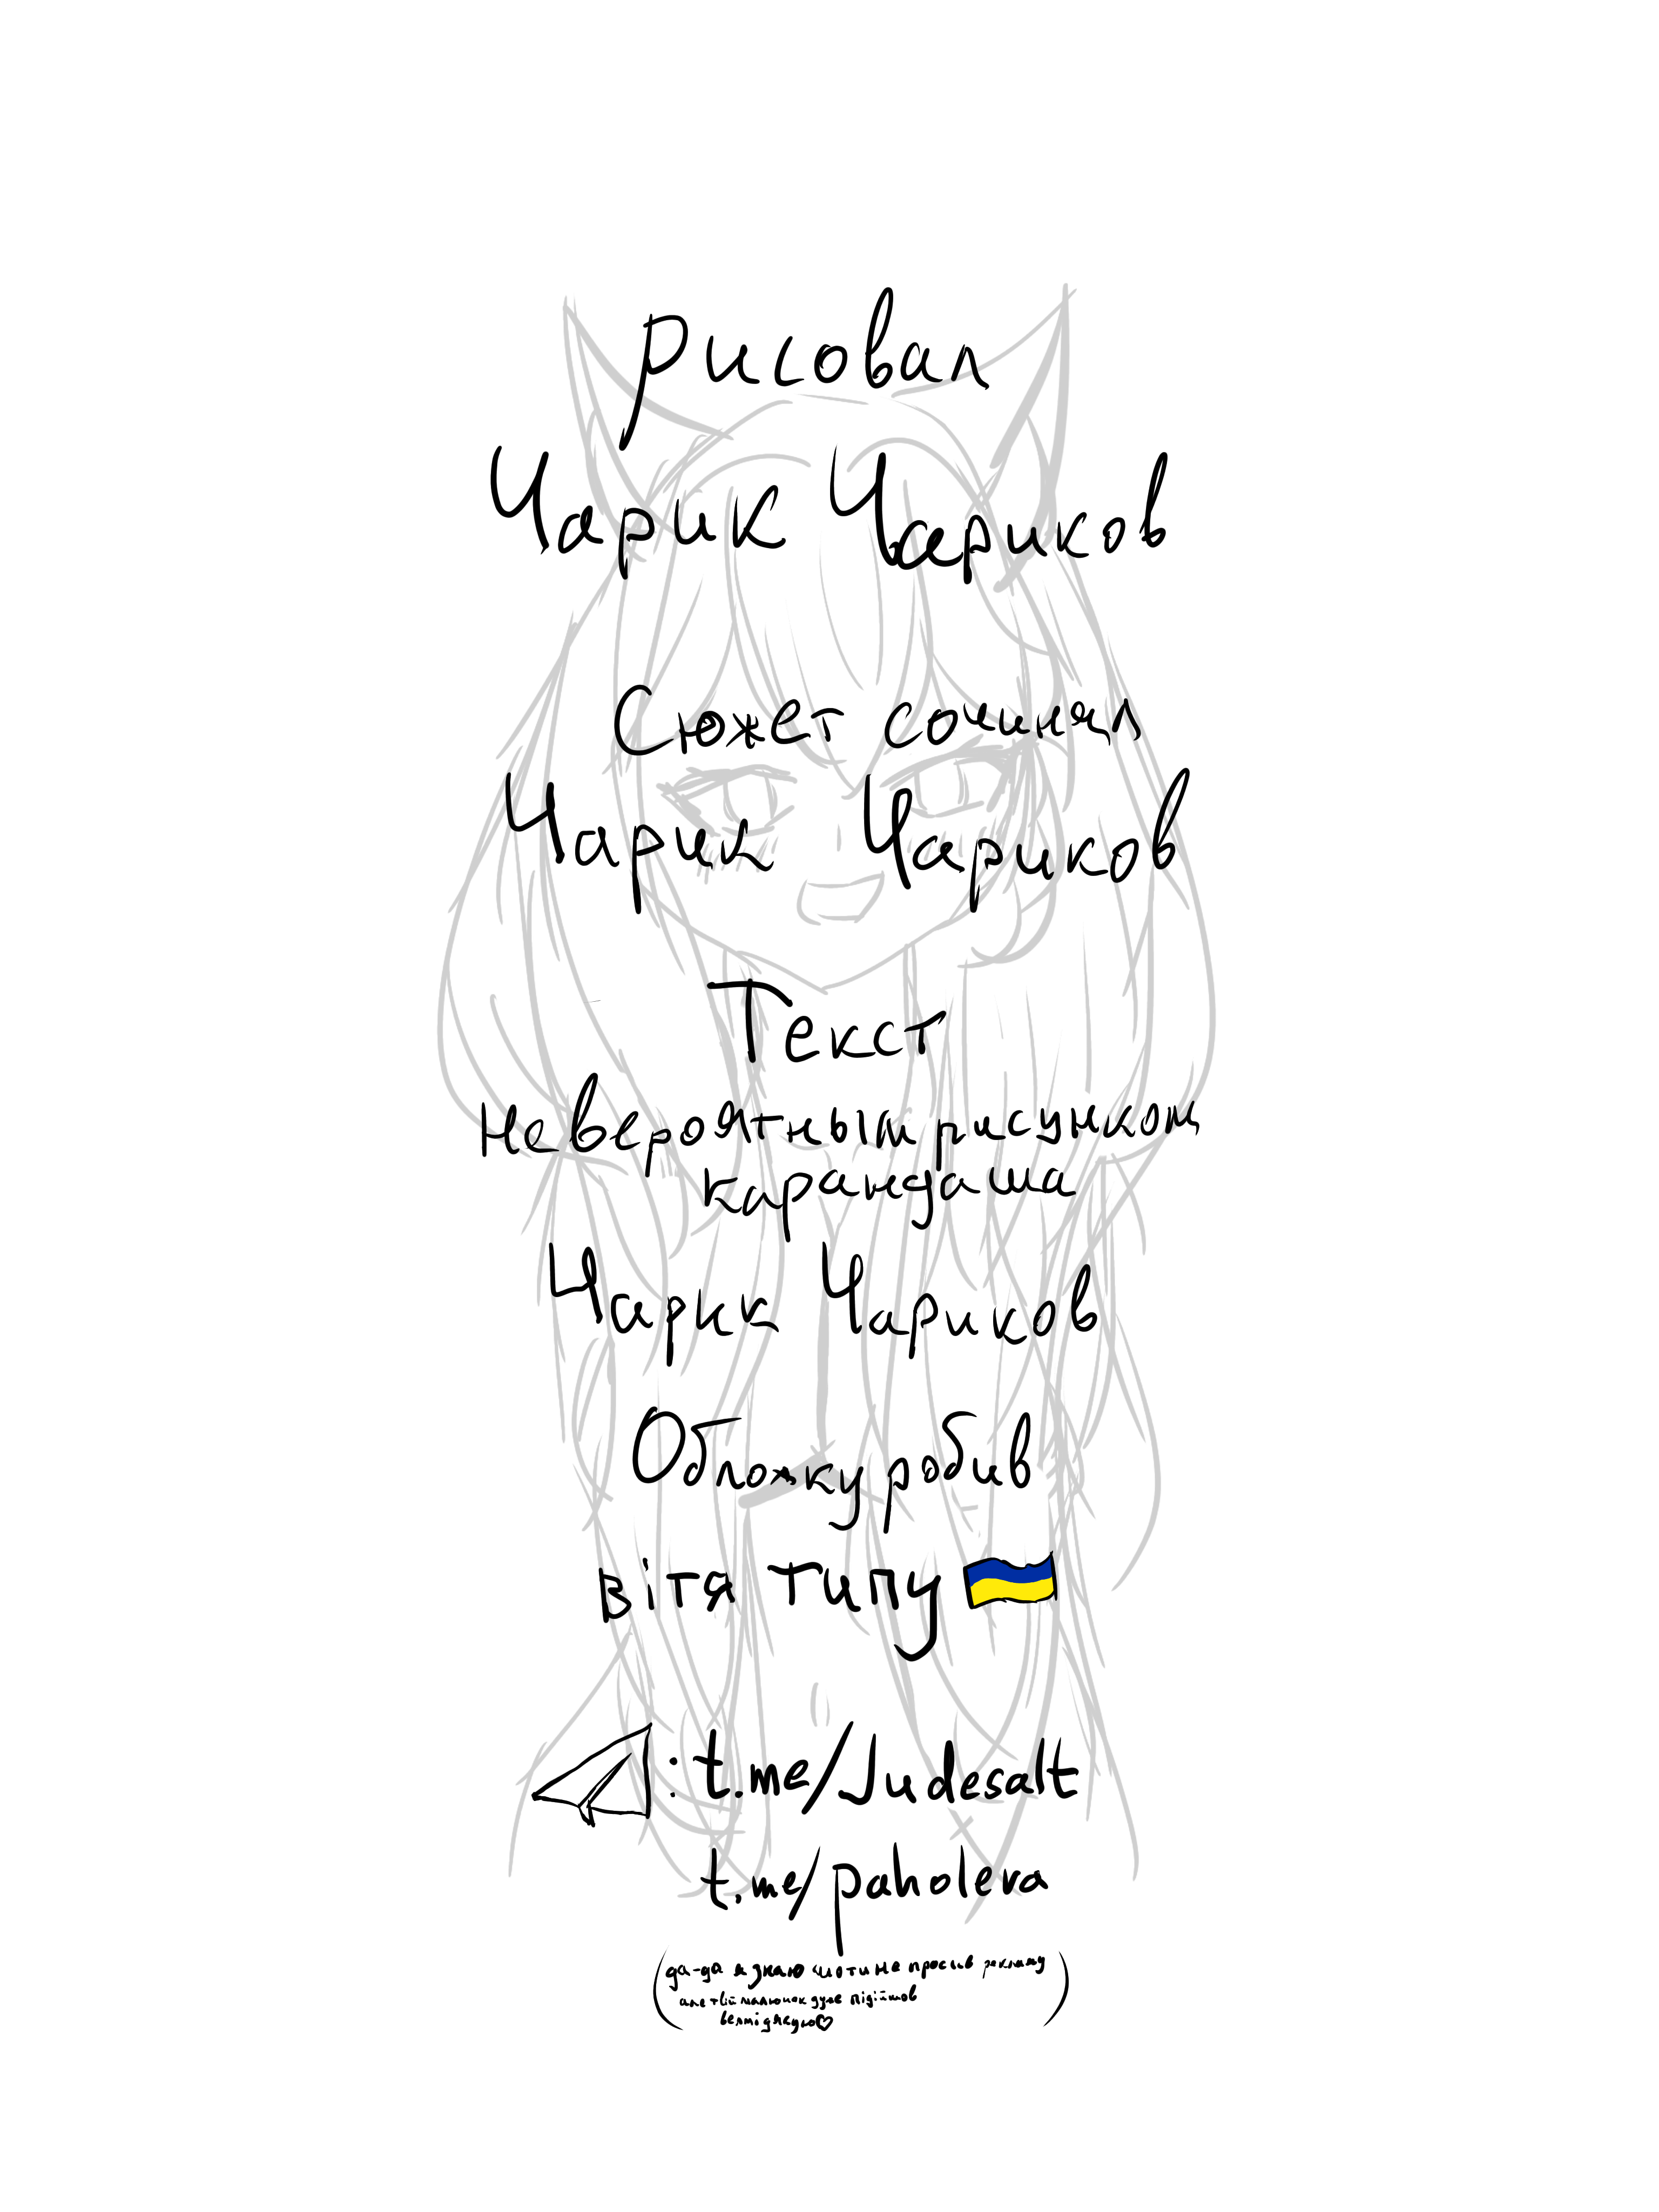 Рисовал
Чарик Чариков
Сюжет сочинял
Чарик Чариков
Текст
невероятным рисунком
карандаша
Чарик Чариков
Обложку робив
вітя типу
: t.me/Judesalt
t.me/paholeva
(да-да я знаю шо ти не просив рекламу
але твій малюнок дуже підійшов
велмі дякую)